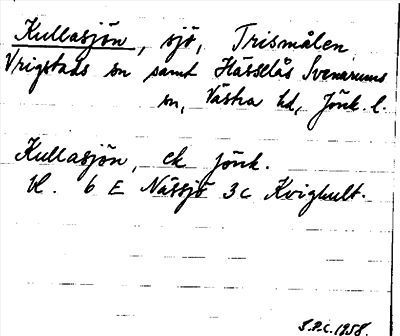 Kullasjön, sjö, Trismålen
Vrigstads sn samt Hässlås Svenarums
sn, Västra hd, Jönk. l.
Kullasjön, ek Jönk.
Bl. 6 E Nässjö 3c Kvighult.
S.P.C. 1958.